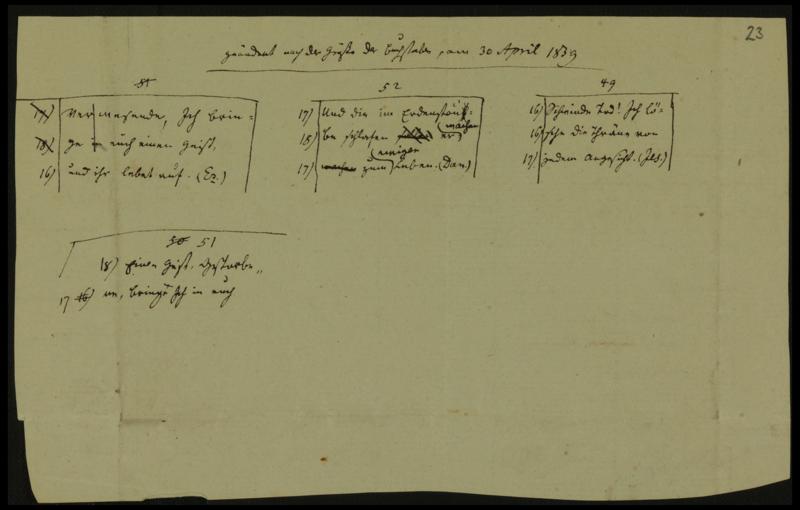 23
geändert nach der Größe der Buchstaben, am 30 April 1839
51
17) Verwesende, Ich brin-
18) ge in euch einen Geist,
16) und ihr lebet auf. (Ez.)
52
17) Und die im Erdenstaub-
machen
18) be schlafen er
ewigen
17) machen zum Leben. (Dan)
49
16) Schwinde Tod! Ich lö-
16) sche die Thräne von
17) jedem Angesicht. (Jes.)
50 51
18) Einen Geist, Gestorbe„
17 16) ne, bringe Ich in euch